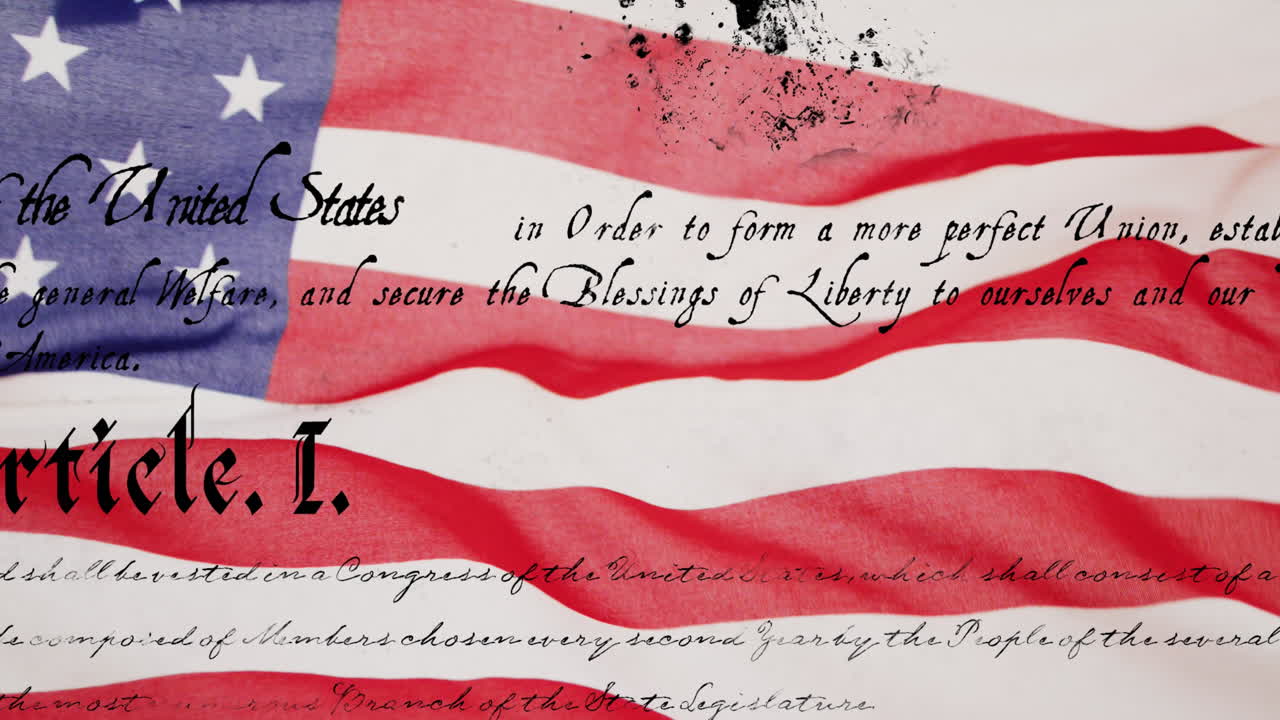 f the United States in Order to form a more perfect Union, estab
e general Welfare, and secure the Blessings of Liberty to ourselves and our
America.
rticle. I.
d shall be vested in a Congress of the United States, which shall consist of a
be composed of Members chosen every second Year by the People of the several
the most numerous Branch of the State Legislature